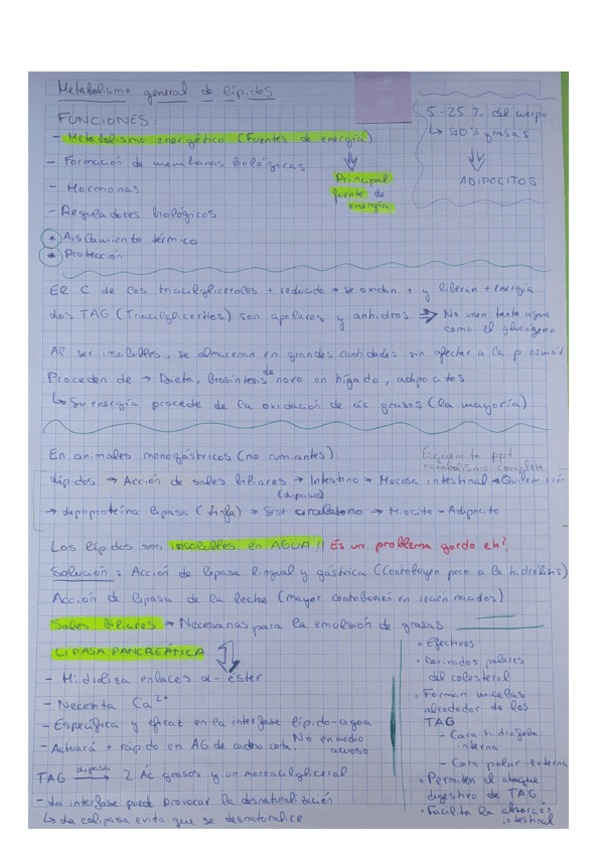 Metabolismo general de lípidos
FUNCIONES:
- Metabolismo energético (Fuentes de energía)
Principal fuente de energía
- Formación de membranas biológicas
- Hormonas
- Reguladores biológicos
* Aislamiento térmico
* Protección
5-25 % del cuerpo
↳ 90% grasas
ADIPOCITOS
El C de los triacilgliceroles + reducido → se oxidan + y liberan + energía
Los TAG (Triacilglicéridos) son apolares y anhidros ⇒ No unen tanta agua
como el glucógeno
Al ser insolubles, se almacenan en grandes cantidades sin afectar a la p. osmót
Proceden de → Dieta, biosíntesis de novo en hígado, adipocitos
↳ Su energía procede de la oxidación de ác grasos (la mayoría)
En animales monogástricos (no rumiantes):
Esquemita ppt
metabolismo completo
Lípidos → Acción de sales biliares → Intestino → Mucosa intestinal → Quilomicrón
(lipasas)
→ Lipoproteína lipasa (linfa) → Sist circulatorio → Miocito - Adipocito
Los lípidos son insolubles en AGUA!! Es un problema gordo eh?
Solución: Acción de lipasa lingual y gástrica (Contribuyen poco a la hidrólisis)
Acción de lipasa de la leche (mayor contribución en recién nacidos)
Sales biliares → Necesarias para la emulsión de grasas
LIPASA PANCREÁTICA
- Hidroliza enlaces α-éster
- Necesita Ca²⁺
- Específica y eficaz en la interfase lípido-agua
- Actuará + rápido en AG de cadena corta. No en medio
acuoso
TAG lipasa → 2 Ác grasos y un monoacilglicerol
- La interfase puede provocar la desnaturalización
↳ La colipasa evita que se desnaturalice
· Efectivos
· Derivados polares
del colesterol
· Forman micelas
alrededor de los
TAG
- Cara hidrófoba
interna
- Cara polar externa
· Permiten el ataque
digestivo de TAG
· Facilita la absorción
intestinal